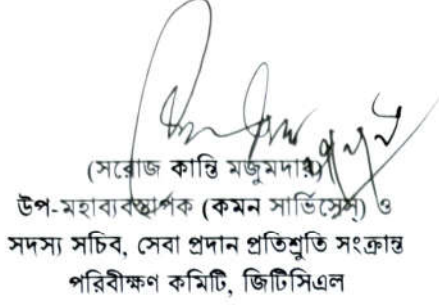 (সরোজ কান্তি মজুমদার)
উপ-মহাব্যবস্থাপক (কমন সার্ভিসেস্) ও
সদস্য সচিব, সেবা প্রদান প্রতিশ্রুতি সংক্রান্ত
পরিবীক্ষণ কমিটি, জিটিসিএল